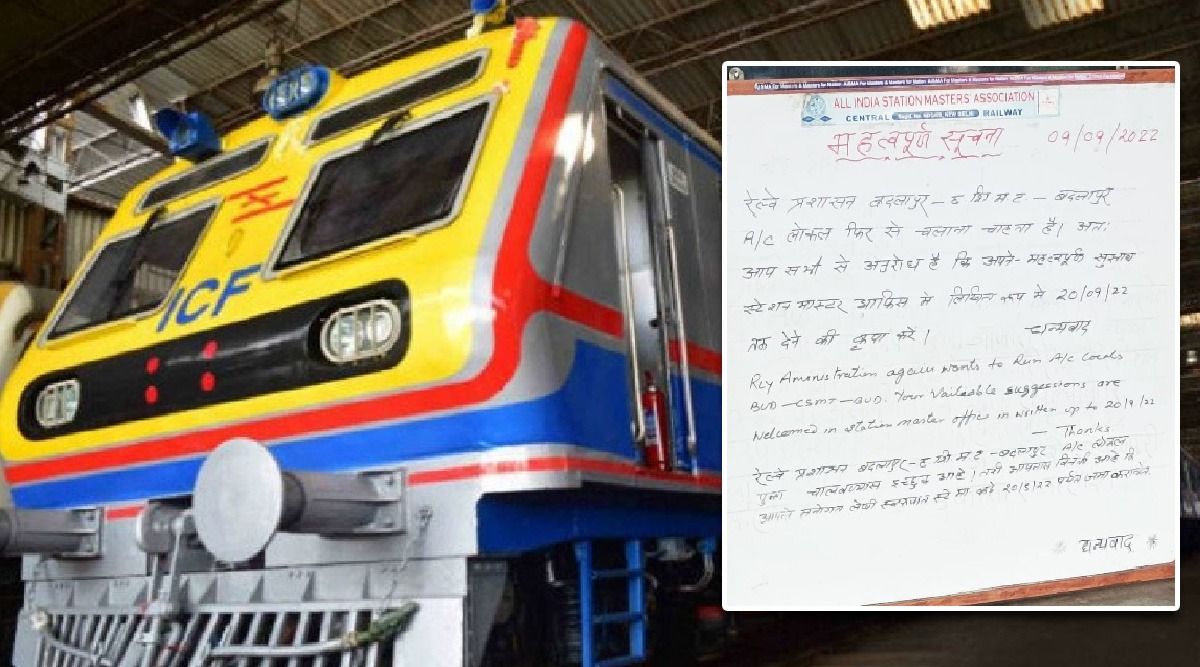 ICF
ALL INDIA STATION MASTERS' ASSOCIATION
CENTRAL RAILWAY
महत्वपूर्ण सूचना 09/09/2022
रेल्वे प्रशासन बदलापुर - छ शि म ट - बदलापुर
A/c लोकल फिर से चलाना चाहता है। अतः
आप सभी से अनुरोध है कि अपने महत्वपूर्ण सुझाव
स्टेशन मास्टर ऑफिस मे लिखित रूप मे 20/09/22
तक देने की कृपा करें। धन्यवाद
Rly Aministration again wants to Run A/c locals
BUD - CSMT - BUD. Your Valueable suggessions are
Welcomed in station master office in written up to 20/9/22
- Thanks
रेल्वे प्रशासन बदलापुर - छ शि म ट - बदलापुर A/c लोकल
पुन्हा चालवण्यास इच्छुक आहे। तरी आपणास विनंती आहे की
आपले मनोगत लेखी स्वरूपात 20/9/22 पर्यंत जमा करावेत.
धन्यवाद